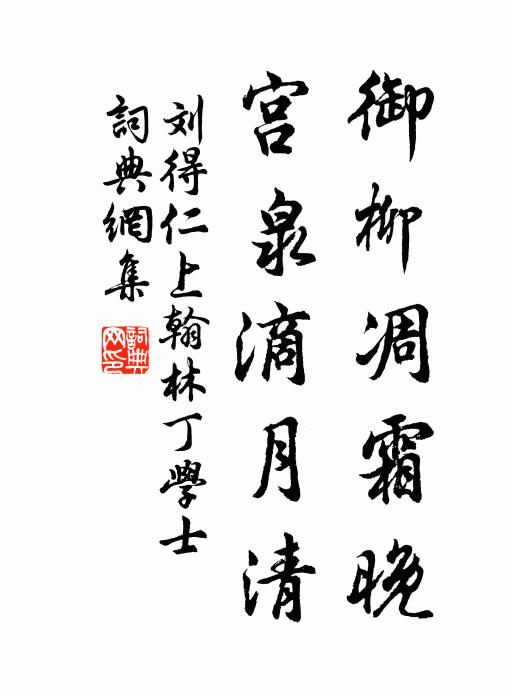 御柳凋霜晚
宫泉滴月清
刘得仁上翰林丁學士
詞典網集
詞典网印